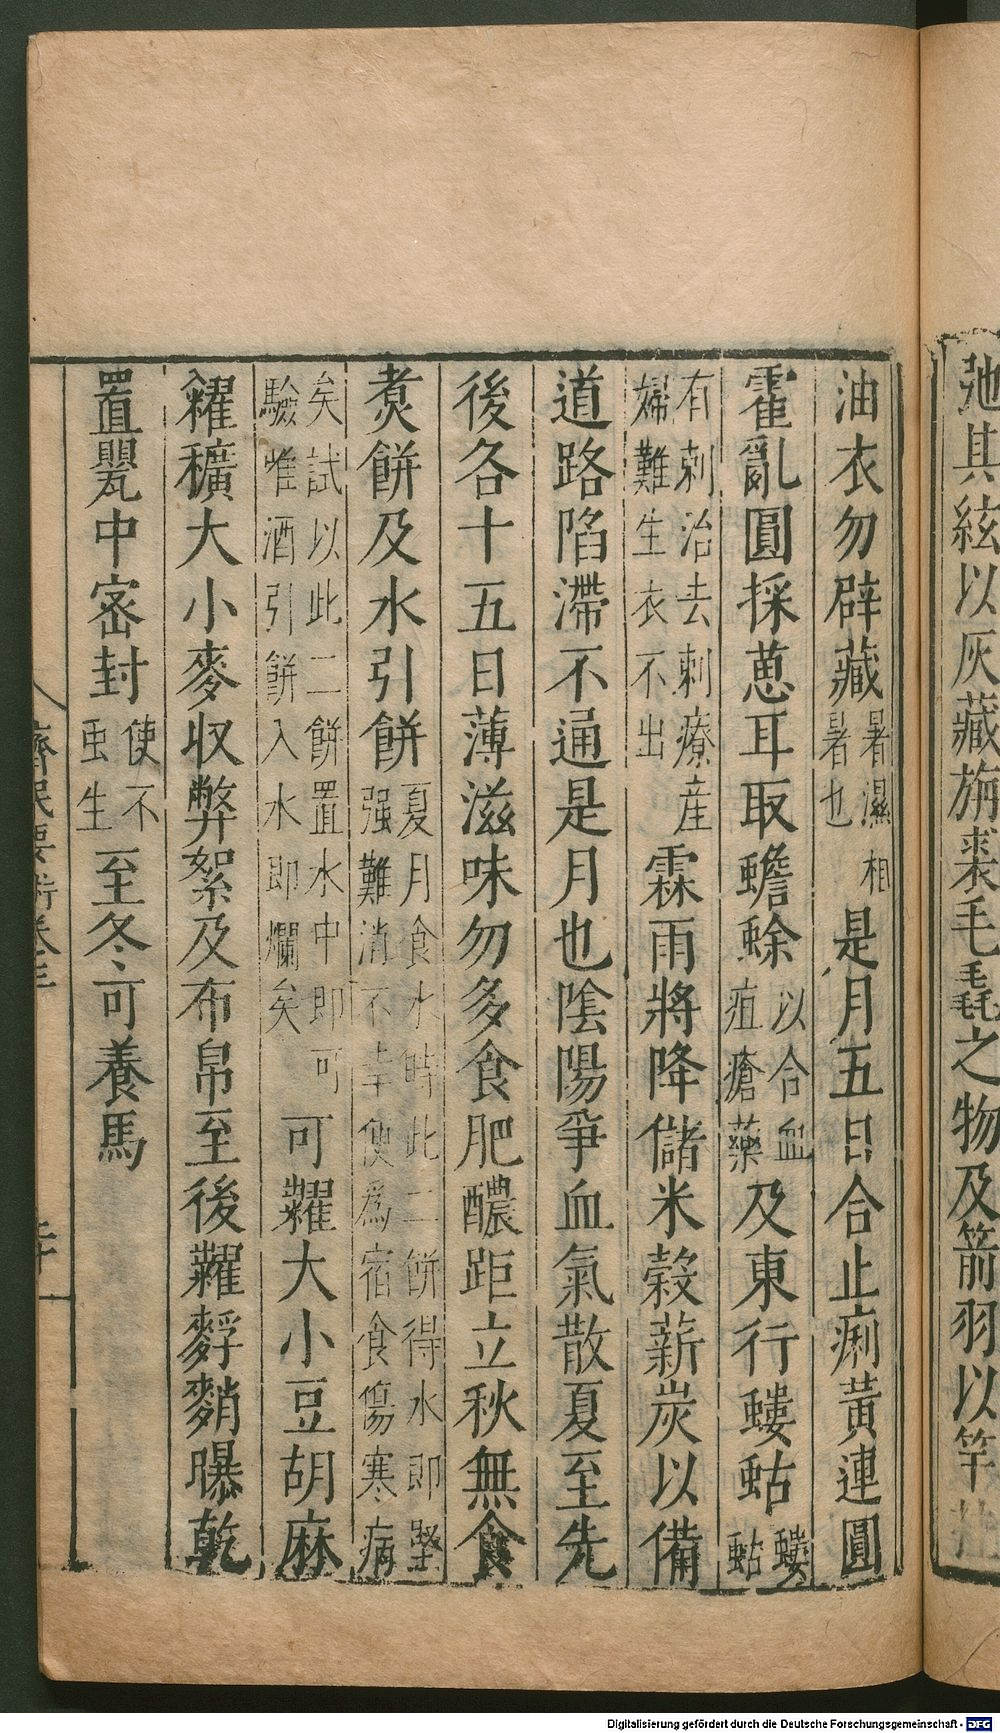 弛其絃以灰藏旃裘毛毳之物及箭羽以竿挂
油衣勿辟藏暑濕相暑也是月五日合止痢黃連圓
霍亂圓採葸耳取蟾蜍以合血疽瘡藥及東行螻蛄螻蛄
有刺治去刺療産婦難生衣不出霖雨將降儲米穀薪炭以備
道路陷滯不通是月也陰陽爭血氣散夏至先
後各十五日薄滋味勿多食肥醲距立秋無食
煑餅及水引餅夏月食水時此二餅得水即堅强難消不幸便爲宿食傷寒病
矣試以此二餅置水中即可驗惟酒引餅入水即爛矣可糶大小豆胡麻
糴穬大小麥收弊絮及布帛至後糶䴸䴛曝乾
置甖中密封使不虫生至冬可養馬
齊民要術卷三
Digitalisierung gefördert durch die Deutsche Forschungsgemeinschaft - DFG